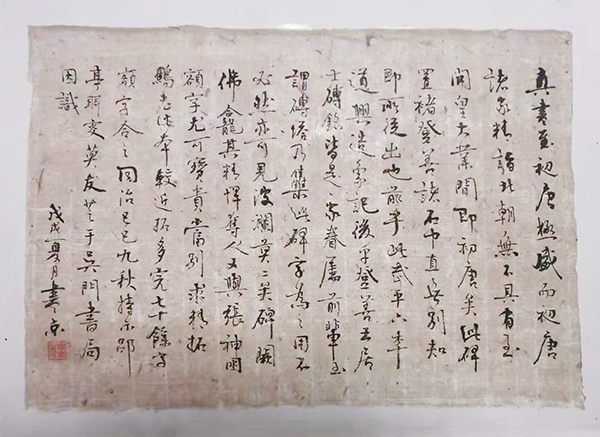 真書至初唐極盛而初唐
諸家精詣北朝無不具有至
開皇大業間即初唐矣此碑
置褚登善諸石中直無別知
即所從出也前乎此武平六年
道興造象記後乎登善王居
士磚銘皆是一家眷屬前輩至
謂磚塔乃集此碑字為之固不
必然亦可見波瀾莫二矣碑闕
佛龕其精悍奪人又與張神冏
額字尤可寶貴當別求精拓
鵬老此本較近拓多完七十餘字
額字全之同治己巳九秋持示郘
亭眲叟莫友芝于吳門書局
因識
戊戌夏月書